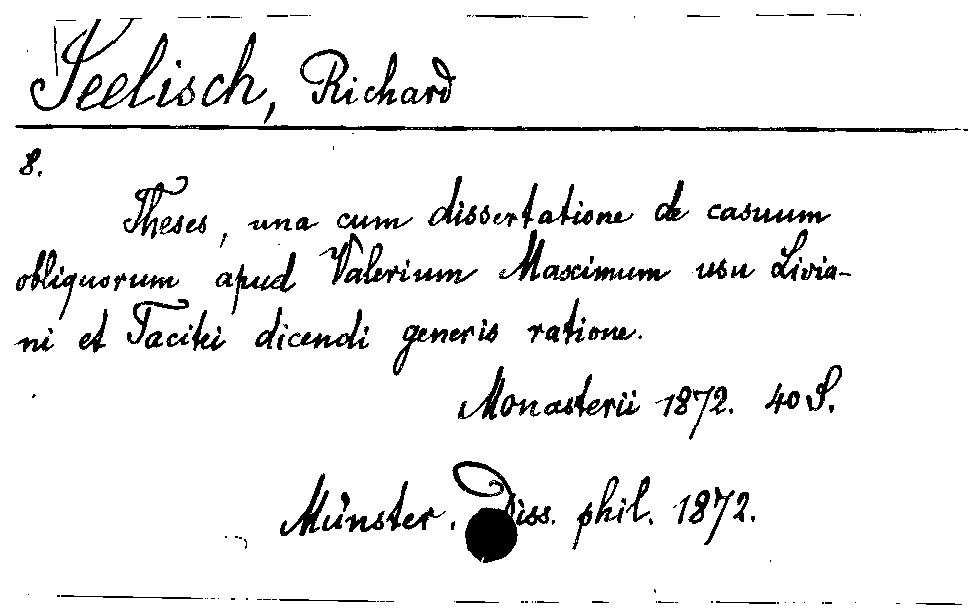 Seelisch, Richard
8.
Theses, una cum dissertatione de casuum
obliquorum apud Valerium Maximum usu Livia-
ni et Tacitei dicendi generis ratione.
Monasterii 1872. 40 S.
Münster. Diss. phil. 1872.